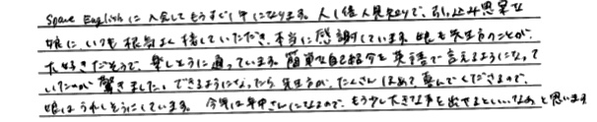 Space Englishに入会してもうすぐ1年になります。人1倍人見知りで、引っ込み思案な
娘にいつも根気よく接していただき、本当に感謝しています。娘も先生のことが
大好きだそうで、楽しそうに通っています。簡単な自己紹介を英語で言えるようになって
いたのが驚きました。できるようになったら先生方が、たくさんほめて、喜んでくださるので、
娘はうれしそうにしています。今年は年中さんになるので、もう少し大きな声を出せるといいなぁと思います